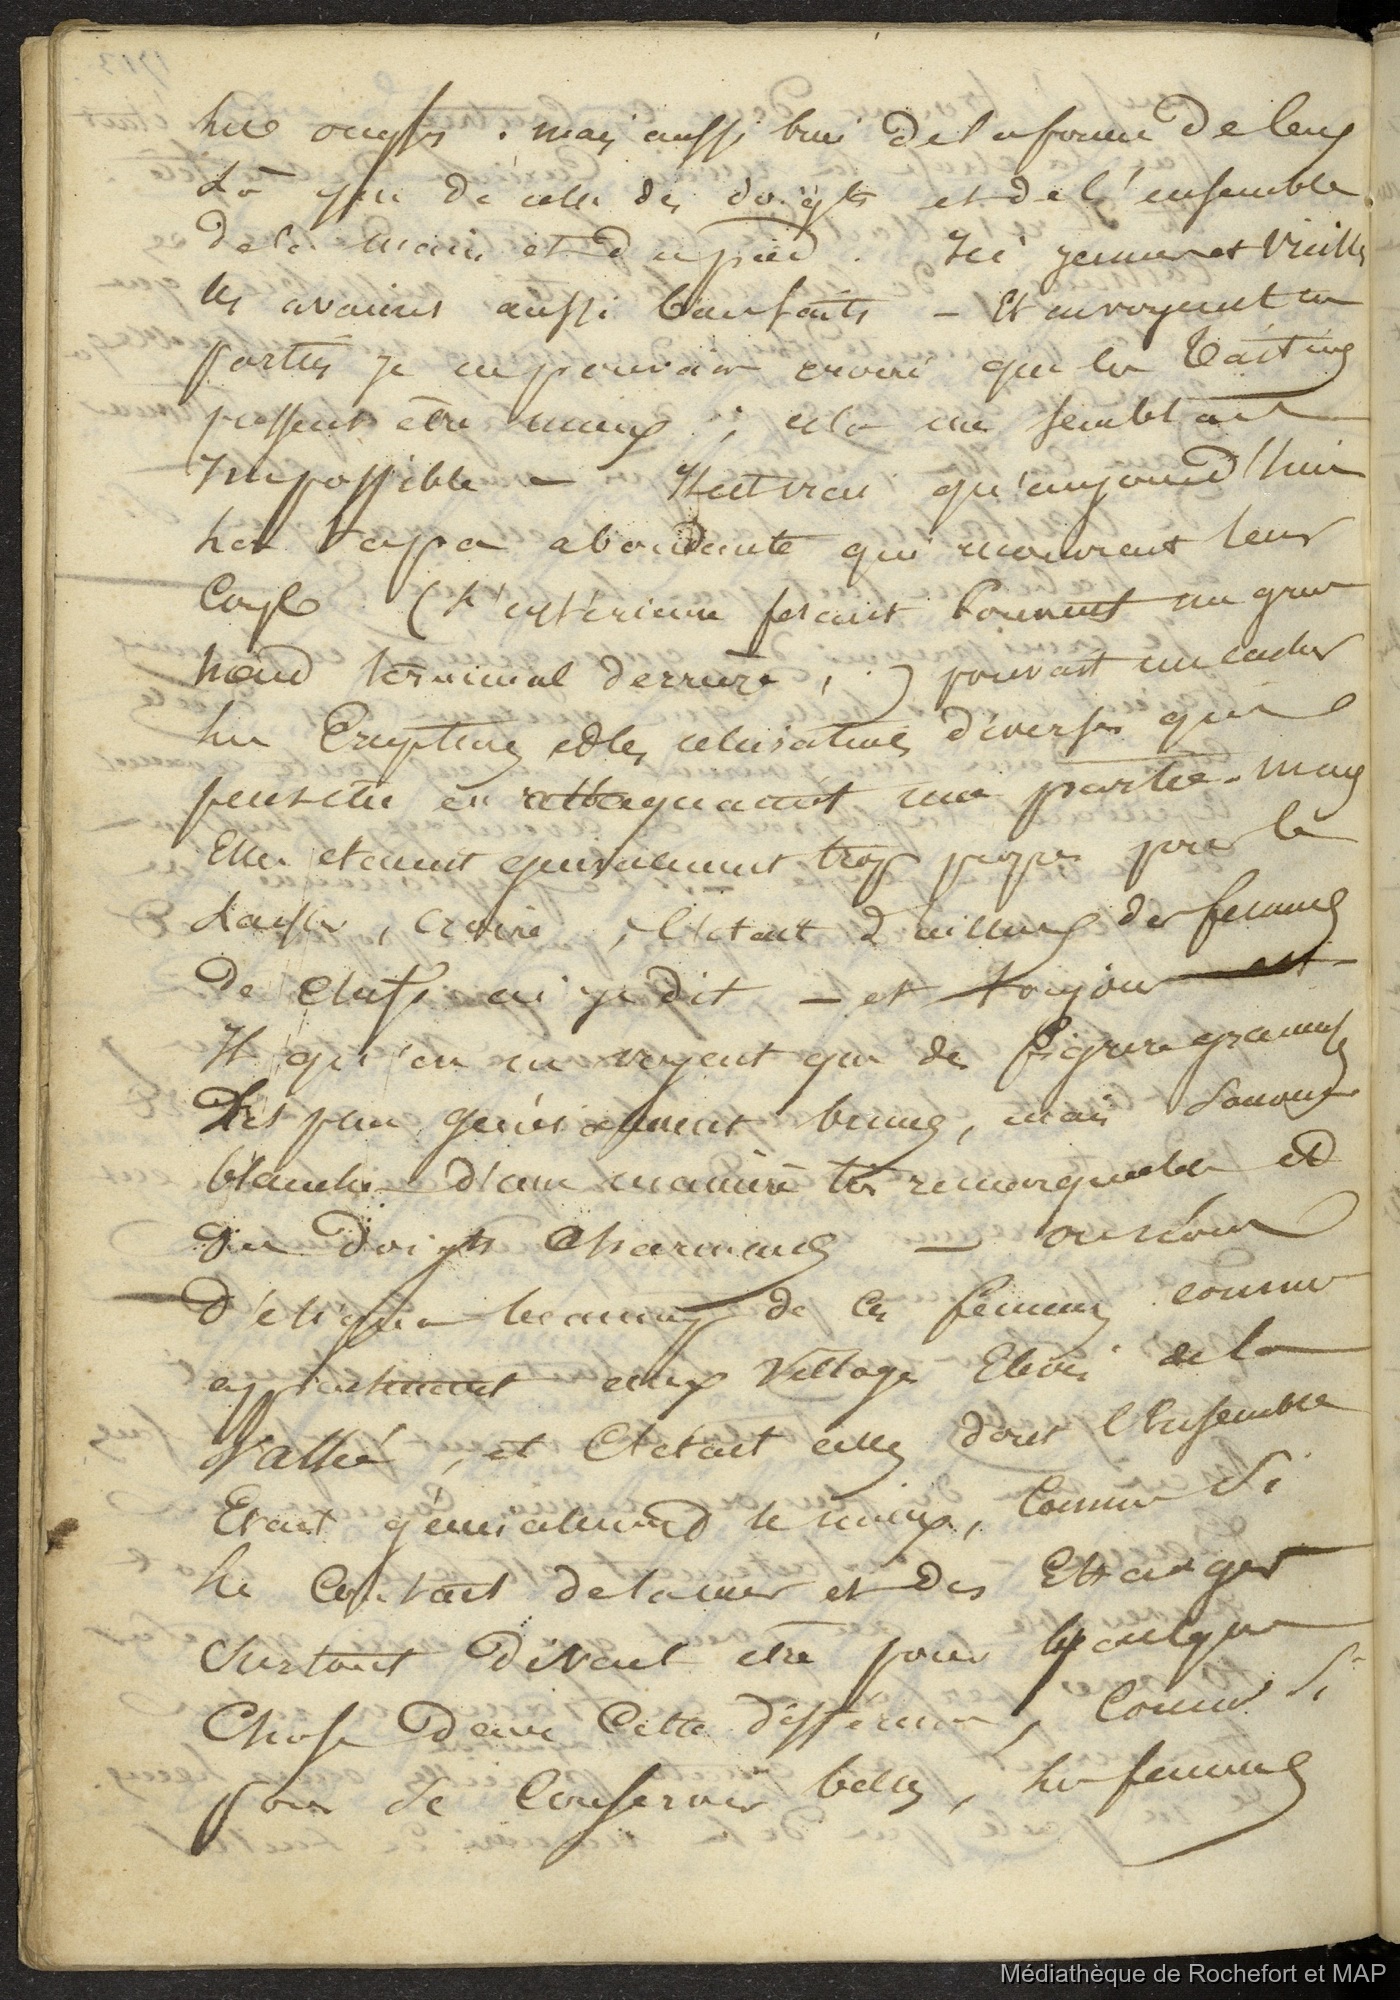 les ongles . mais aussi bien de la forme de leur
que de celle des doigts et de l'ensemble
de la main et du pied . Ici jeunes et vieilles
les avaient aussi bien faits – Et en voyant ces
parties je ne pouvais croire que les Taïtiens
pussent être mieux ; cela me semblait
Impossible – Il est vrai qu'aujourd'hui
les tapa abondante qui recouvrent leur
Corps (l'extérieure faisant souvent un gros
noeud terminal derrière , ) pouvait me cacher
les Eruptions et les ulcérations diverses qui
peut être en attaquaient une partie . mais
Elles étaient généralement trop propres pour le
laisser croire ; C'était d'ailleurs des femmes
de Chefs ai je dit – et toujours
qu'on ne voyent que des figures
Des peau généralement brunes, mais souvent
blanche d'une manière très remarquable et
des doigts charmants –
beaucoup de ces femmes comme
appartenant aux Village Elevés de la
Vallée , et C'était celles dont l'Ensemble
Etait généralement le mieux, Comme Si
le Contact de la mer et des Etranger
Surtout devait être pour quelque
Chose dans Cette différence , Comme Si
pour se Conserver belles , les femmes
Médiathèque de Rochefort et MAP